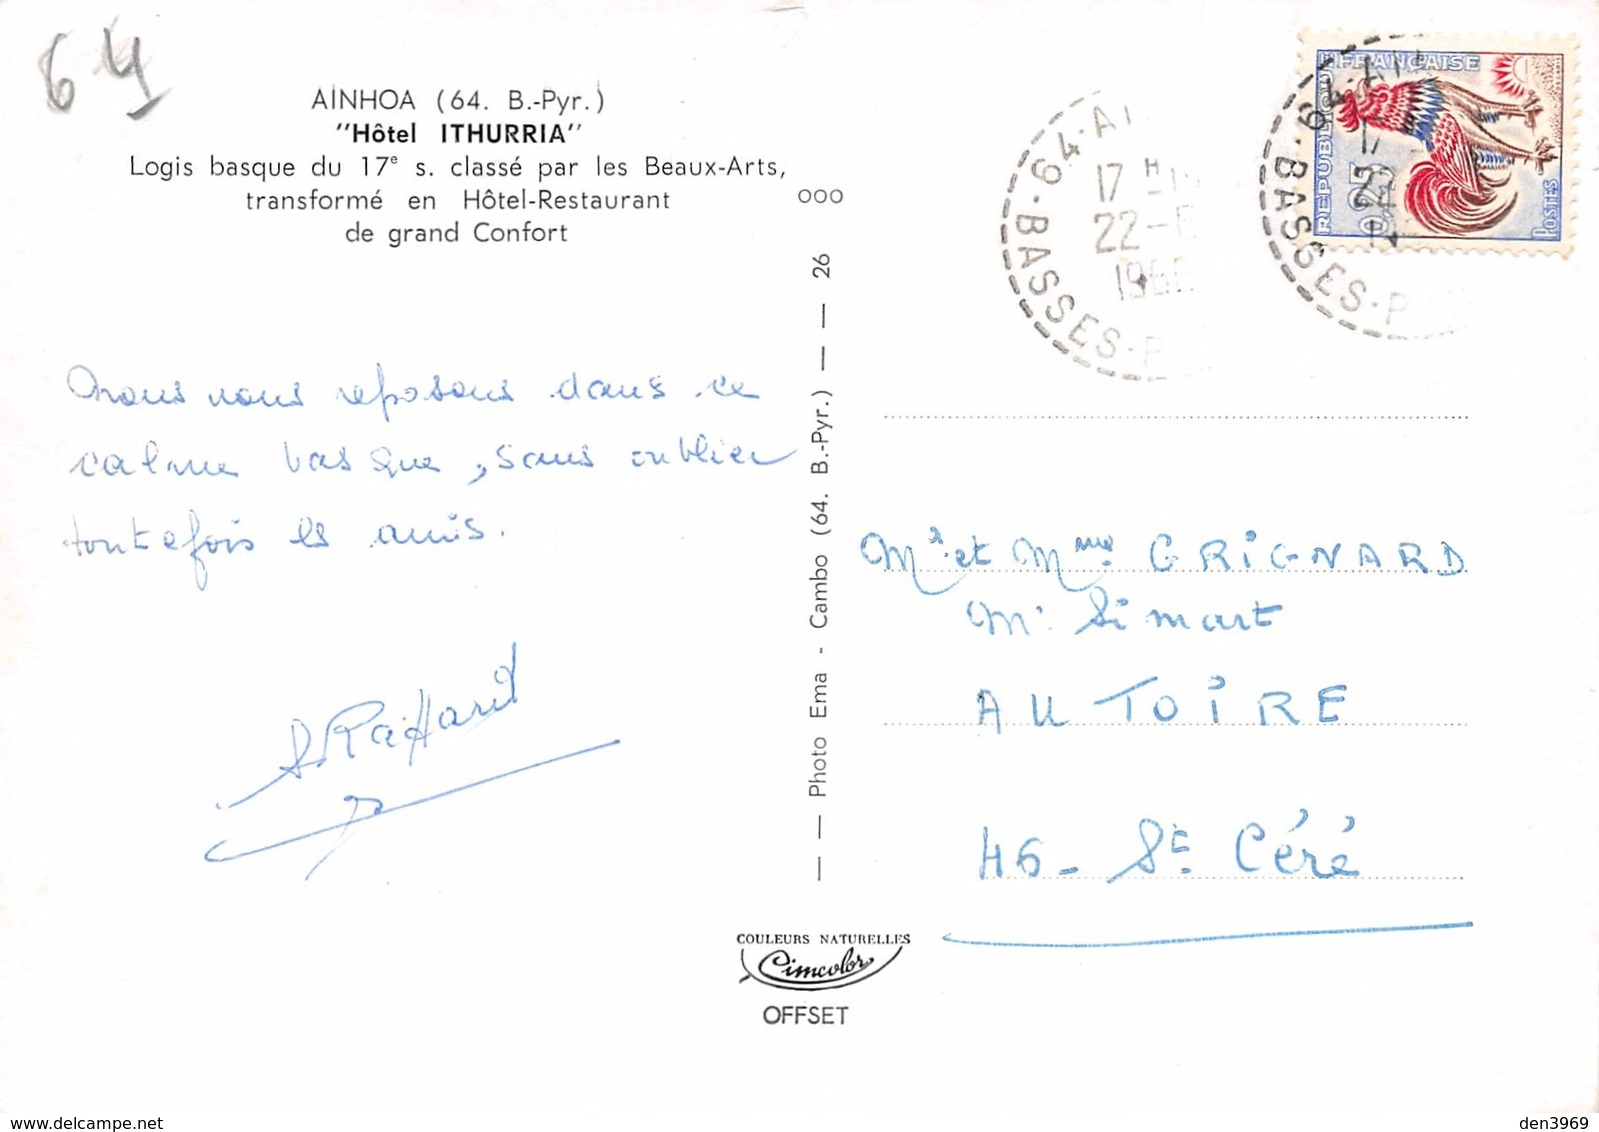 64
AINHOA (64. B.-Pyr.)
"Hôtel ITHURRIA"
Logis basque du 17e s. classé par les Beaux-Arts,
transformé en Hôtel-Restaurant
de grand Confort
000
nous nous reposons dans ce
calme basque, sans oublier
toutefois les amis.
— — Photo Ema - Cambo (64. B.-Pyr.) — — 26
64·AI
17 H
22-
196
BASSES·P
REPUBLIQUE FRANÇAISE
0,25
POSTES
64·AI
22
BASSES·P
Mr et Mme GRIGNARD
Mr Simart
AUTOIRE
46 - St Céré
COULEURS NATURELLES
Cimcolor
OFFSET
den3969